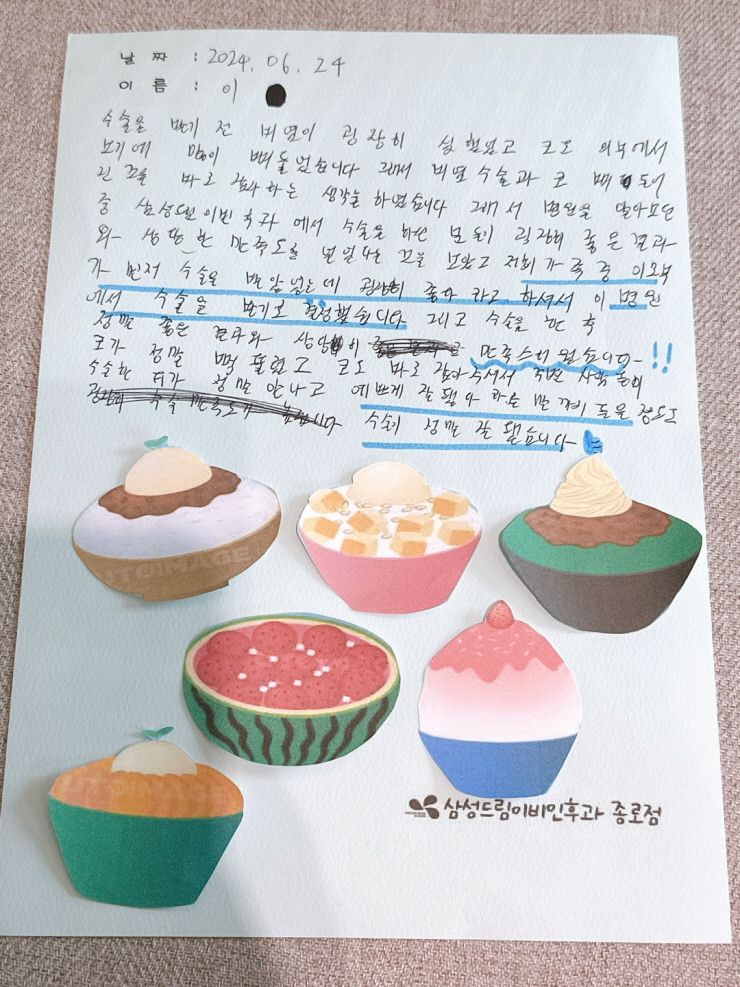 날 짜 : 2024. 06. 24
이 름 : 이
수술을 받기 전 비염이 굉장히 심했었고 코도 외부에서
보기에 많이 삐뚤었습니다 그래서 비염수술과 코 삐뚤어
진 것을 바로 잡아 하는 생각을 하였습니다 그래서 병원을 알아보던
중 삼성드림이비인후과에서 수술을 하신 분들이 굉장히 좋은 결과
와 상당한 만족도를 보았고 저희 가족 중 이모부
가 먼저 수술을 받았었는데 굉장히 좋다라고 하셔서 이 병원
에서 수술을 받기로 결정했습니다 그리고 수술을 한 후
정말 좋은 결과와 상당히 만족스러웠습니다 !!
코가 정말 뻥 뚫렸고 코도 바로 잡아주셔서 직전 사람들이
수술한 티가 정말 안나고 예쁘게 잘 됐다 하는 말까지 들을 정도로
수술이 정말 잘 됐습니다
삼성드림이비인후과 종로점